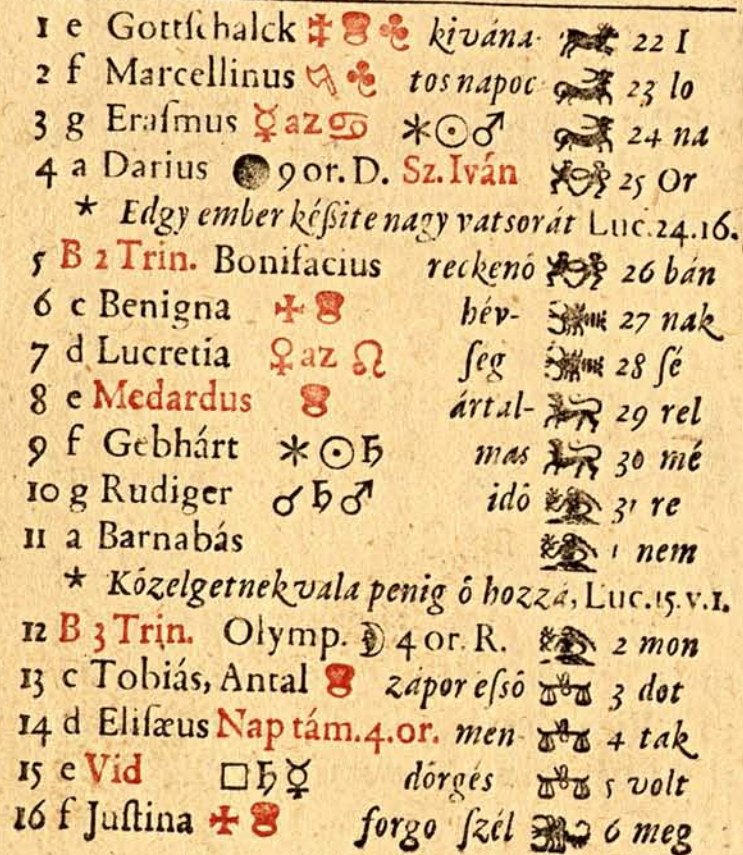 1 e Gottſchalck kivána- 22 I
2 f Marcellinus tos napoc 23 lo
3 g Eraſmus ☿ az ♋ ⚹☉♂ 24 na
4 a Darius 9 or. D. Sz. Iván 25 Or
* Edgy ember kéßite nagy vatsorát Luc. 24.16.
5 B 2 Trin. Bonifacius reckenó 26 bán
6 c Benigna hév- 27 nak
7 d Lucretia ♀ az ♌ ſeg 28 ſé
8 e Medardus ártal- 29 rel
9 f Gebhárt ⚹☉♄ mas 30 mé
10 g Rudiger ☌♄♂ idô 31 re
11 a Barnabás 1 nem
* Kózelgetnek vala penig ô hozzá, Luc. 15. v. 1.
12 B 3 Trin. Olymp. ☽ 4 or. R. 2 mon
13 c Tobiás, Antal zápor eſsô 3 dot
14 d Eliſæus Nap tám. 4. or. men- 4 tak
15 e Vid □♄☿ dórgés 5 volt
16 f Juſtina forgo ſzél 6 meg